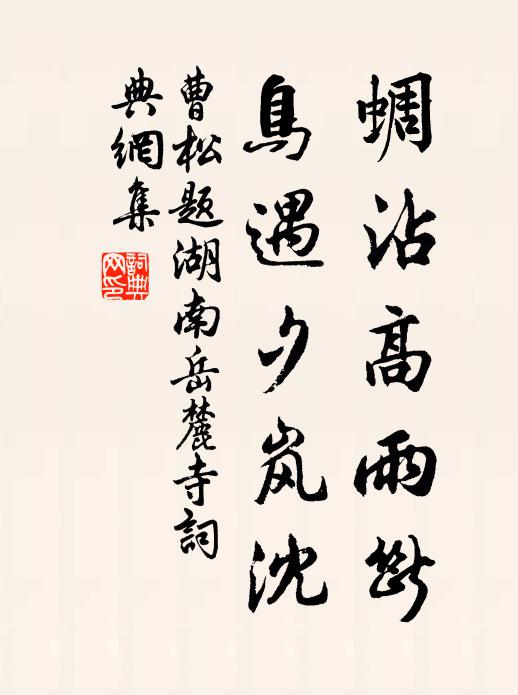 蜩沾高雨斷
鳥遇夕岚沈
曹松题湖南岳麓寺詞
典網集
詞典
网印